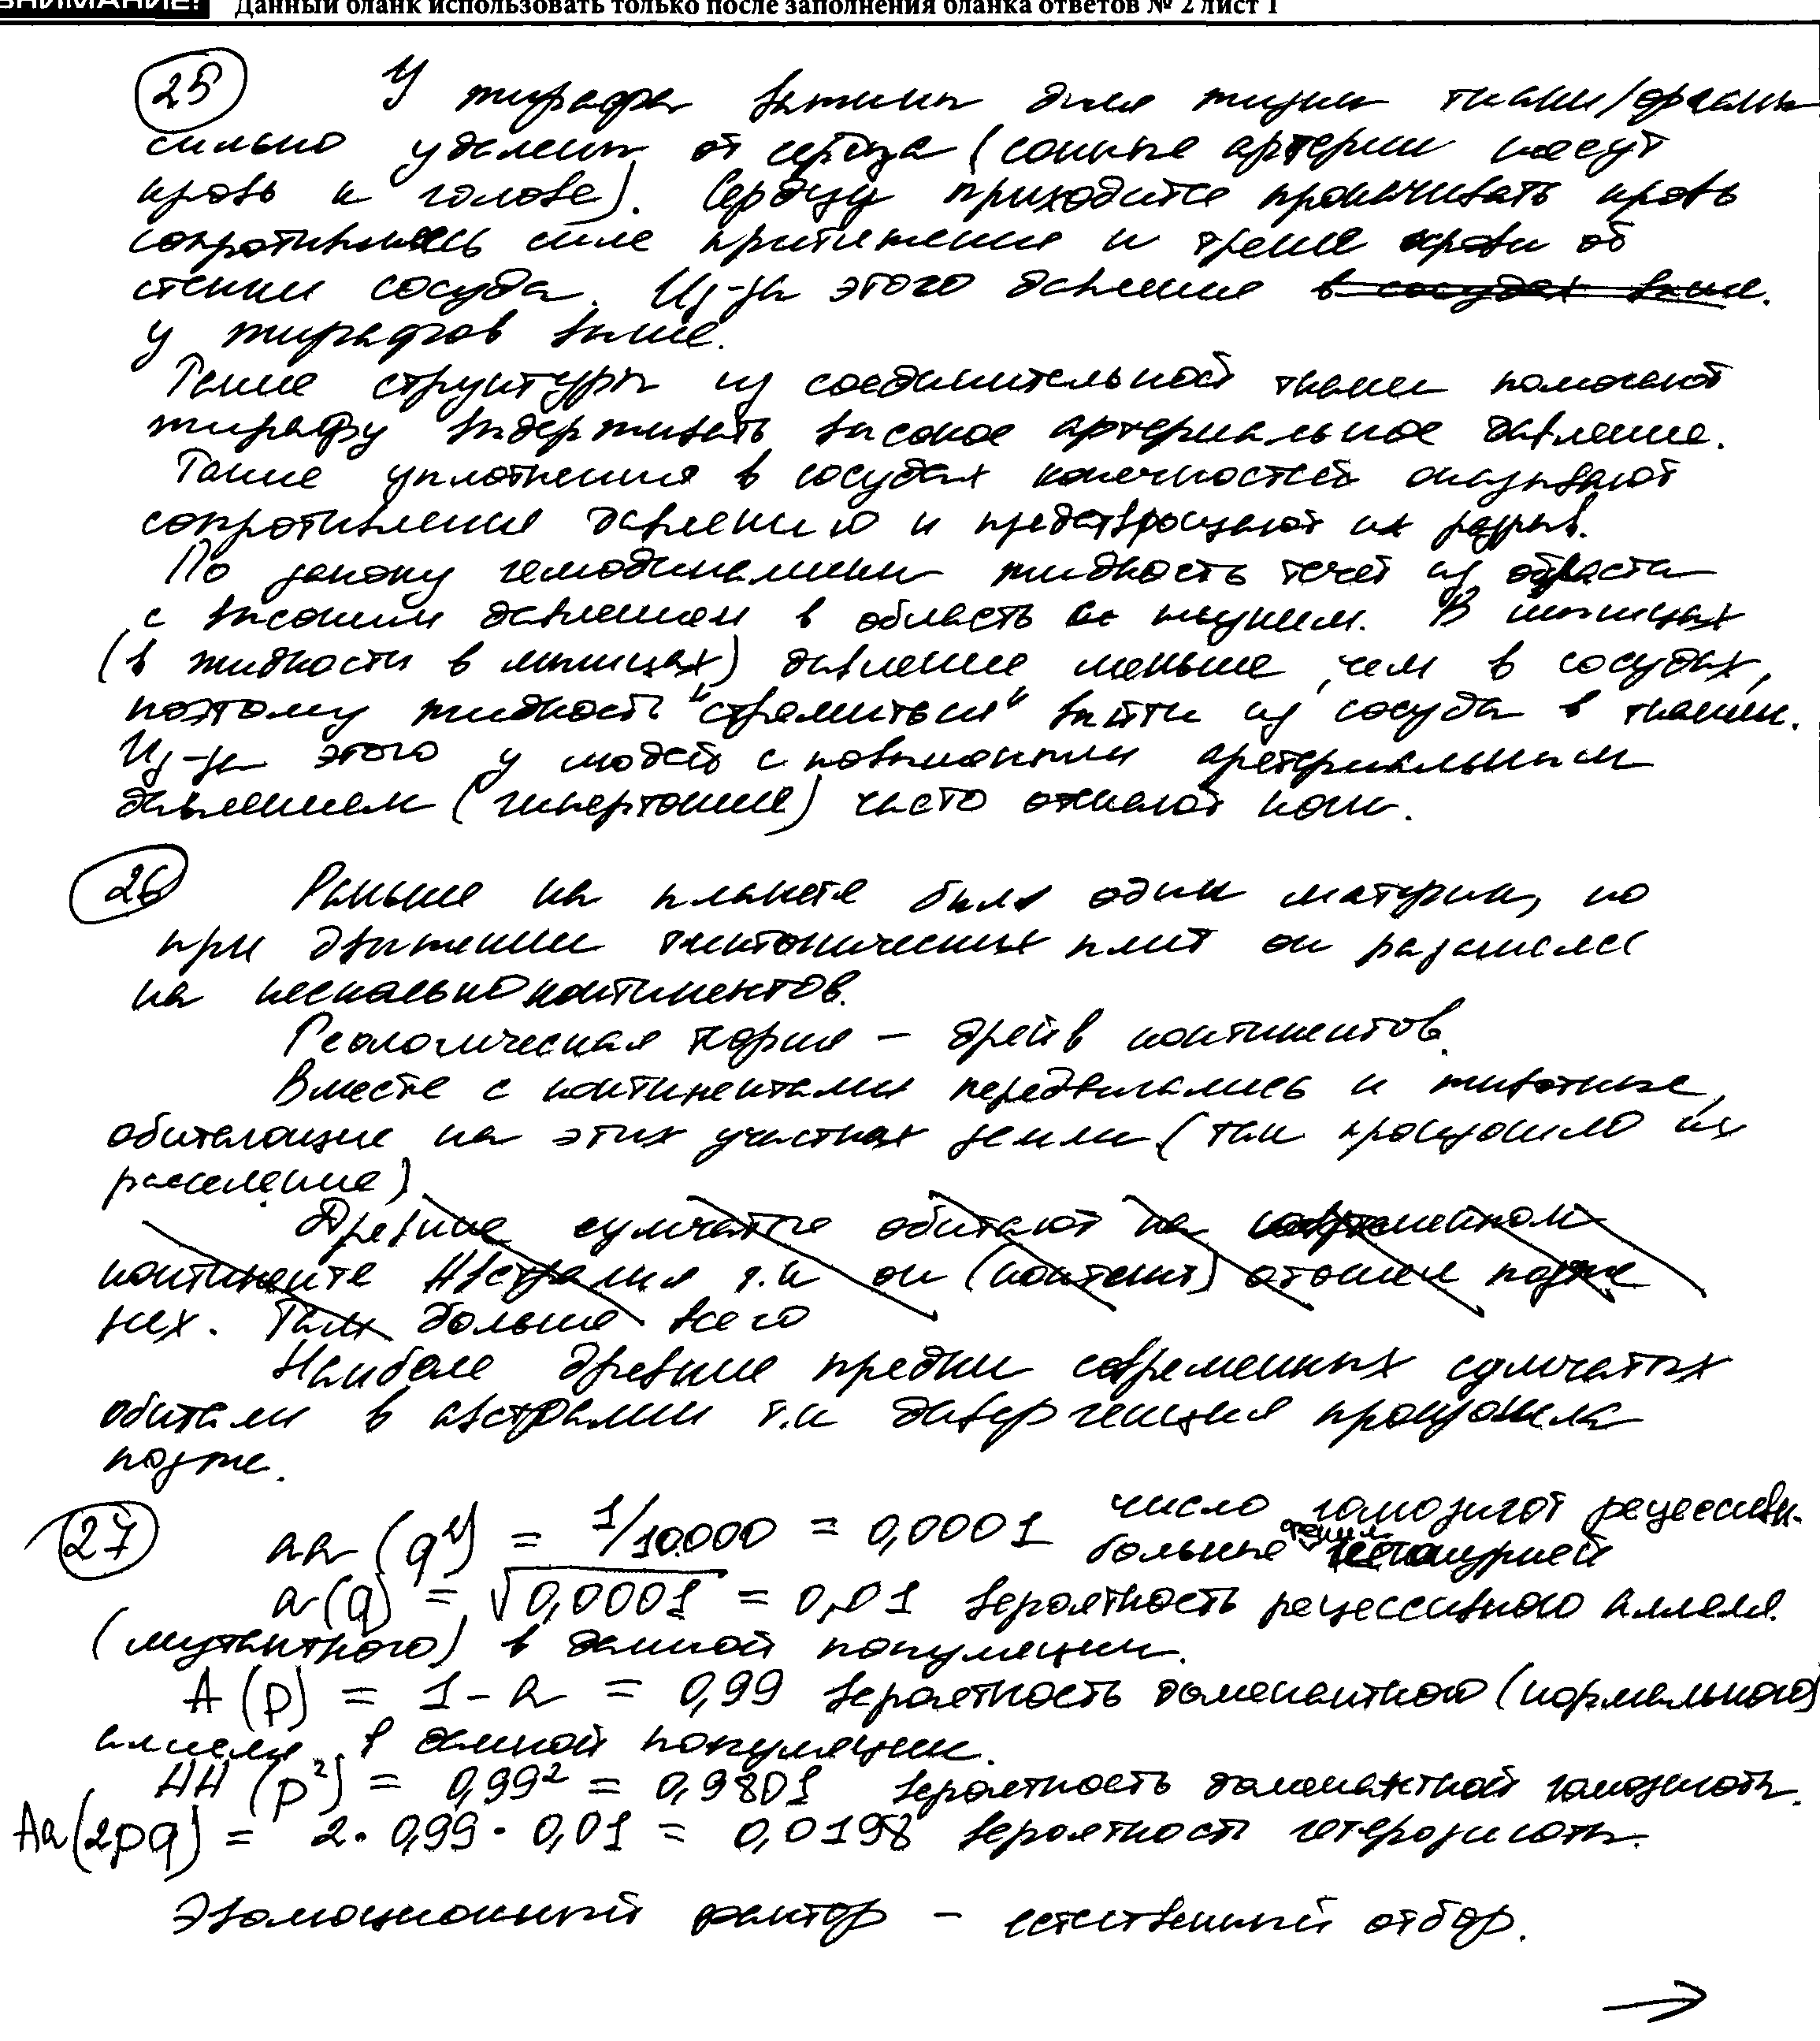 ВНИМАНИЕ! Данный бланк использовать только после заполнения бланка ответов № 2 лист 1
25 У жирафа важны для жизни ткани/органы
сильно удалены от сердца (сонные артерии несут
кровь к голове). Сердцу приходится прокачивать кровь
сопротивляясь силе притяжения и трение крови об
стенки сосуда. Из-за этого давление в сосудах выше.
у жирафов выше.
Такие структуры из соединительной ткани помогают
жирафу выдерживать высокое артериальное давление.
Такие уплотнения в сосудах конечностей оказывают
сопротивление давлению и предотвращают их разрыв.
По закону гемодинамики жидкость течет из области
с высоким давлением в область с низким. В мышцах
(в жидкости в мышцах) давление меньше, чем в сосудах,
поэтому жидкость "стремиться" выйти из сосуда в ткани.
Из-за этого у людей с повышенным аретериальным
давлением (гипертоние) часто отекают ноги.
26 Раньше на планете был один материк, но
при движении тиктонических плит он разшелся
на несколько континентов.
Геологическая теория – дрейв континентов.
Вместе с континентами передвигались и животные,
обитающие на этих участках земли (так происходило их
расселение)
Древние сумчатые обитают на современном
континенте Австралия т.к он (континт) отошел позже
всех. Там больше всего
Наиболе древние предки современных сумчатых
обитали в австралии т.к дивергенция произошла
позже.
27 aa (q²) = 1/10.000 = 0,0001 число гомозигот рецессивн.
больные фенилкетонурией
a(q) = √0,0001 = 0,01 вероятность рецессивного аллеля.
(мутантного) в данной популяции.
A (p) = 1 - a = 0,99 вероятность доменантного (нормального)
аллеля в данной популяции.
AA (p²) = 0,99² = 0,9801 вероятность доменантной гомозиготы.
Aa (2pq) = 2 · 0,99 · 0,01 = 0,0198 вероятность гетерозиготы.
Эволюционный фактор – естественный отбор.
→